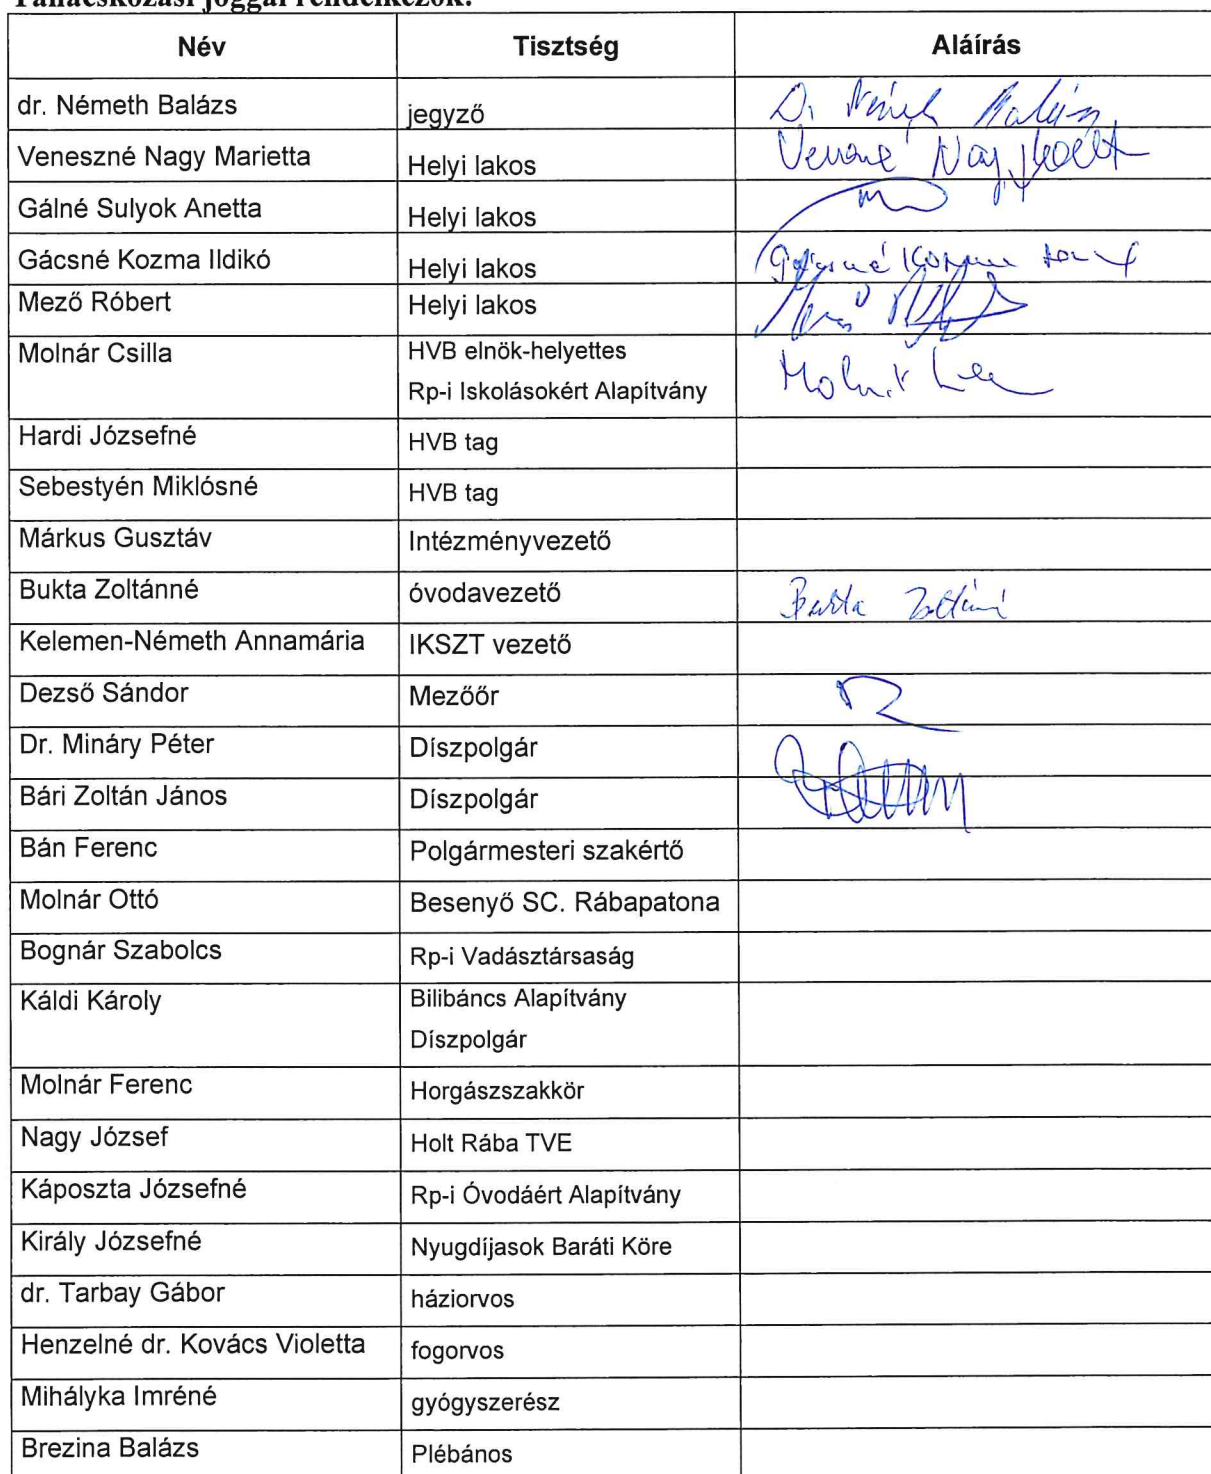 Tanácskozási joggal rendelkezők:
Név Tisztség Aláírás
dr. Németh Balázs jegyző Dr Németh Balázs
Veneszné Nagy Marietta Helyi lakos Nagy
Gálné Sulyok Anetta Helyi lakos
Gácsné Kozma Ildikó Helyi lakos Gácsné Kozma
Mező Róbert Helyi lakos Mező
Molnár Csilla HVB elnök-helyettes Molnár
Rp-i Iskolásokért Alapítvány
Hardi Józsefné HVB tag
Sebestyén Miklósné HVB tag
Márkus Gusztáv Intézményvezető
Bukta Zoltánné óvodavezető Bukta Zoltánné
Kelemen-Németh Annamária IKSZT vezető
Dezső Sándor Mezőőr
Dr. Mináry Péter Díszpolgár
Bári Zoltán János Díszpolgár
Bán Ferenc Polgármesteri szakértő
Molnár Ottó Besenyő SC. Rábapatona
Bognár Szabolcs Rp-i Vadásztársaság
Káldi Károly Bilibáncs Alapítvány
Díszpolgár
Molnár Ferenc Horgászszakkör
Nagy József Holt Rába TVE
Káposzta Józsefné Rp-i Óvodáért Alapítvány
Király Józsefné Nyugdíjasok Baráti Köre
dr. Tarbay Gábor háziorvos
Henzelné dr. Kovács Violetta fogorvos
Mihályka Imréné gyógyszerész
Brezina Balázs Plébános